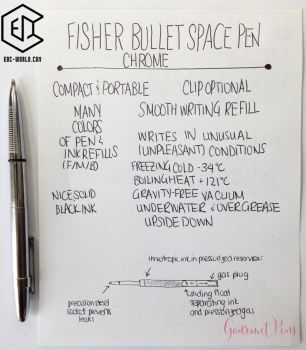 EDC
EDC-WORLD.COM
FISHER BULLET SPACE PEN
CHROME
COMPACT & PORTABLE
CLIP OPTIONAL
MANY
COLORS
OF PEN &
INK REFILLS
(F/M/B)
NICE SOLID
BLACK INK
SMOOTH WRITING REFILL
WRITES IN UNUSUAL
(UNPLEASANT) CONDITIONS
FREEZING COLD -34°C
BOILING HEAT +121°C
GRAVITY-FREE VACUUM
UNDERWATER & OVER GREASE
UPSIDE DOWN
thixotropic ink in pressurized reservoir
gas plug
precision steel
socket prevents
leaks
sliding float
separating ink
and pressurized gas
Gourmet Pens